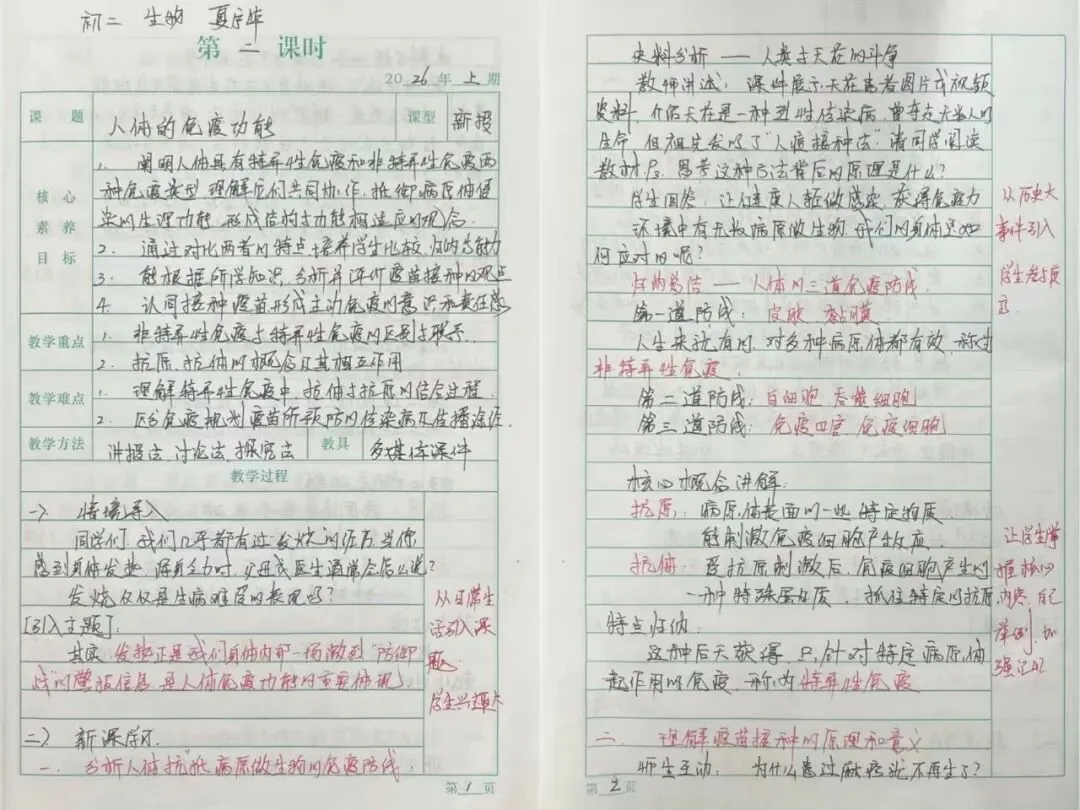 初二 生物 夏宗华
第 二 课时
2026年 上 期
课 题 人体的免疫功能 课型 新授
核心素养目标
1. 阐明人体具有特异性免疫和非特异性免疫两
种免疫类型 理解它们共同协作, 抵御病原体侵
染的生理功能 形成结构与功能相适应的观念.
2. 通过对比两者的特点, 培养学生比较, 归纳总能力
3. 能根据所学知识, 分析并评价疫苗接种的观点
4. 认同接种疫苗形成主动免疫的意识和责任感
教学重点
1. 非特异性免疫与特异性免疫的区别与联系.
2. 抗原, 抗体的概念及其相互作用
教学难点
1. 理解特异性免疫中, 抗体与抗原的结合过程.
2. 区分免疫规划疫苗所预防的传染病及传播途径.
教学方法 讲授法, 讨论法, 探究法 教具 多媒体课件
教学过程
一> 情境导入
同学们, 我们几乎都有过发烧的经历, 当你
感到身体发热, 浑身乏力时, 父母或医生通常会怎么说?
发烧仅仅是生病难受的表现吗?
[引入主题].
其实, 发热正是我们身体内部一场激烈"防御
战"的警报信息 是人体免疫功能的重要体现.
从日常生
活引入课
题,
学生兴趣大
二> 新课学习.
一. 分析人体抵抗病原微生物的免疫防线:
第 1 页
史料分析 —— 人类与天花的斗争
教师讲述: 课件展示天花患者图片或视频
资料, 介绍天花是一种烈性传染病, 曾夺走无数人的
生命, 但祖先发明了"人痘接种法" 请同学阅读
教材 后, 思考这种方法背后的原理是什么?
学生回答: 让健康人轻微感染, 获得免疫力
环境中有无数病原微生物, 我们的身体是如
何应对的呢?
从历史大
事件引入
学生参与度
归纳总结 —— 人体的三道免疫防线.
第一道防线: 皮肤, 黏膜.
人生来就有的, 对多种病原体都有效, 称为
非特异性免疫.
第二道防线: 白细胞, 吞噬细胞
第三道防线: 免疫器官, 免疫细胞
核心概念讲解:
抗原: 病原体表面的一些特定物质
能刺激免疫细胞产生效应
抗体: 受抗原刺激后, 免疫细胞产生的
一种特殊蛋白质, 抓住特定的抗原.
让学生掌
握核心
内容, 自己
举例, 加
强记忆
特点归纳:
这种后天获得, 只针对特定病原体
起作用的免疫, 称为特异性免疫
二. 理解疫苗接种的原理和意义
师生互动: 为什么患过麻疹就不再生了?
第 2 页